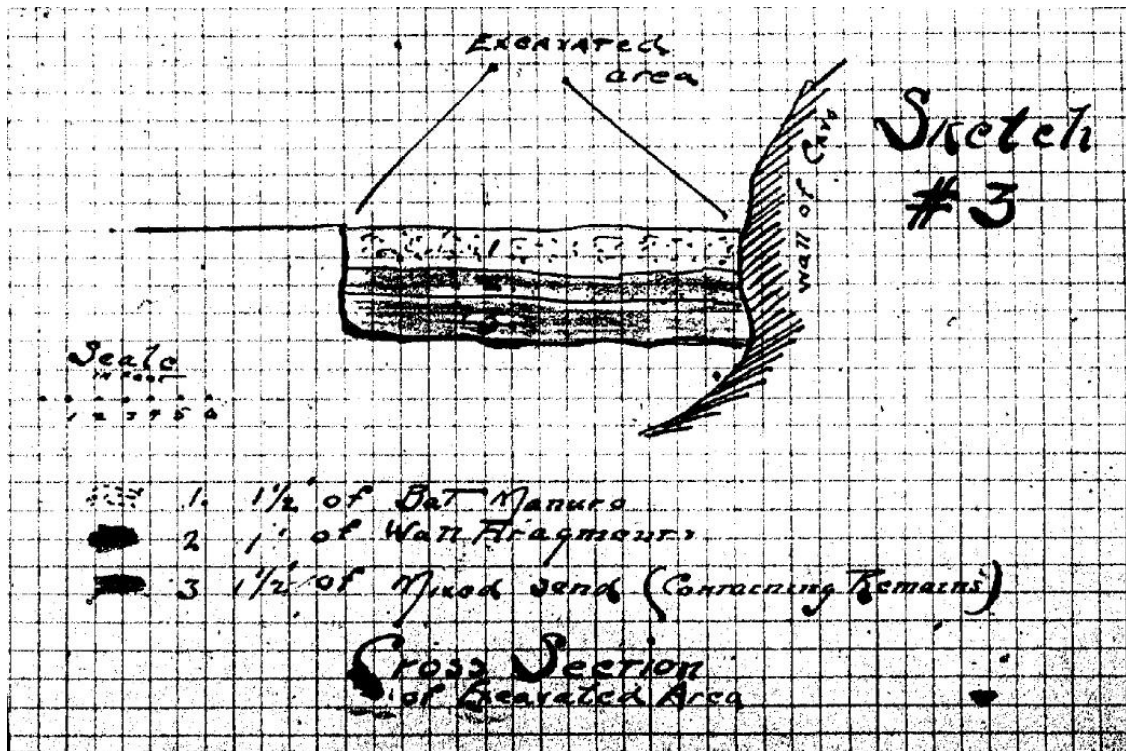 Excavated
area
Sketch
#3
Wall of Cave
1
2
3
Scale
in Feet
1 2 3 4 5 6
1. 1½' of Bat Manure
2 1' of Wall Fragments
3 1½' of Mixed Sand (Containing Remains)
Cross Section
of Excavated Area